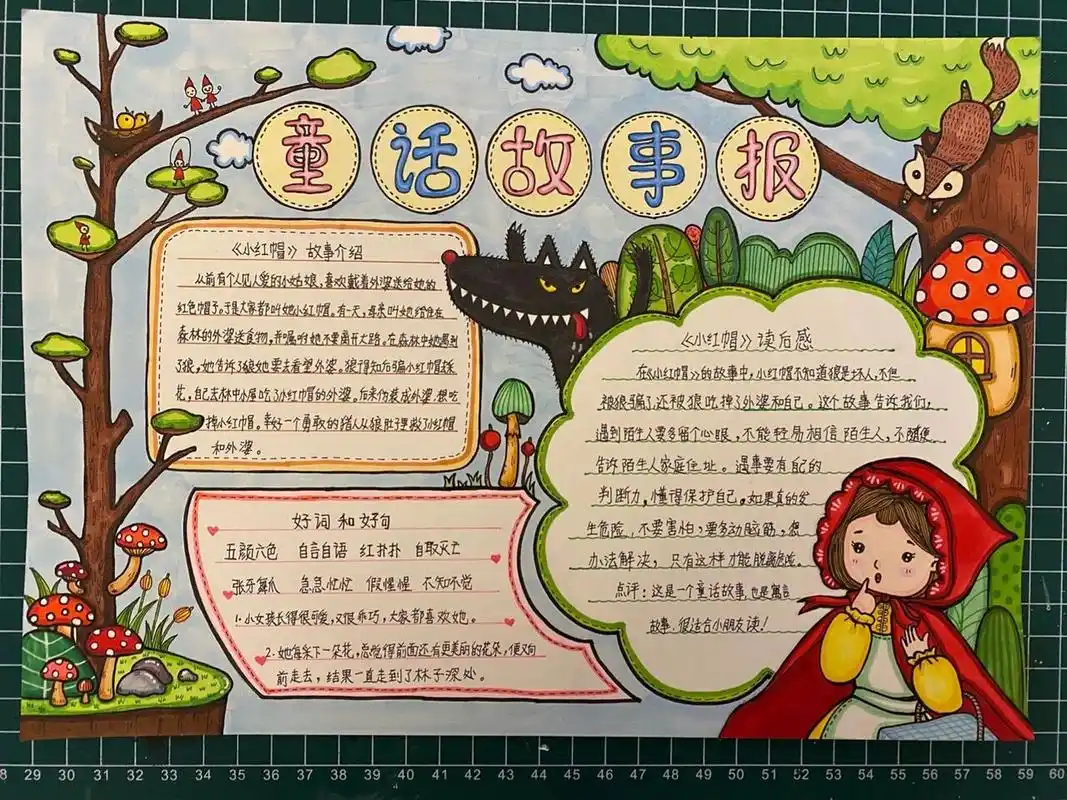 童话故事报
《小红帽》故事介绍
从前有个人见人爱的小姑娘,喜欢戴着外婆送给她的
红色帽子。于是大家都叫她小红帽。有一天,母亲叫她给住在
森林的外婆送食物,并嘱咐她不要离开大路。在森林中她遇到
了狼。她告诉了狼她要去看望外婆。狼得知后骗小红帽去采
花,自己去林中小屋吃了小红帽的外婆。后来伪装成外婆,想吃
掉小红帽。幸好一个勇敢的猎人从狼肚子里救了小红帽
和外婆。
好词和好句
五颜六色 自言自语 红扑扑 自取灭亡
张牙舞爪 急急忙忙 假惺惺 不知不觉
1.小女孩长得很可爱,又很乖巧,大家都喜欢她。
2.她每采下一朵花,总觉得前面还有更美丽的花朵,便又向
前走去,结果一直走到了林子深处。
《小红帽》读后感
在《小红帽》的故事中,小红帽不知道狼是坏人,不但
被狼骗了,还被狼吃掉了外婆和自己。这个故事告诉我们,
遇到陌生人要多留个心眼,不能轻易相信陌生人,不随便
告诉陌生人家庭住址。遇事要有自己的
判断力,懂得保护自己。如果真的发
生危险,不要害怕,要多动脑筋,想
办法解决,只有这样才能脱离危险。
点评:这是一个童话故事,也是寓言
故事,很适合小朋友读!
28 29 30 31 32 33 34 35 36 37 38 39 40 41 42 43 44 45 46 47 48 49 50 51 52 53 54 55 56 57 58 59 60